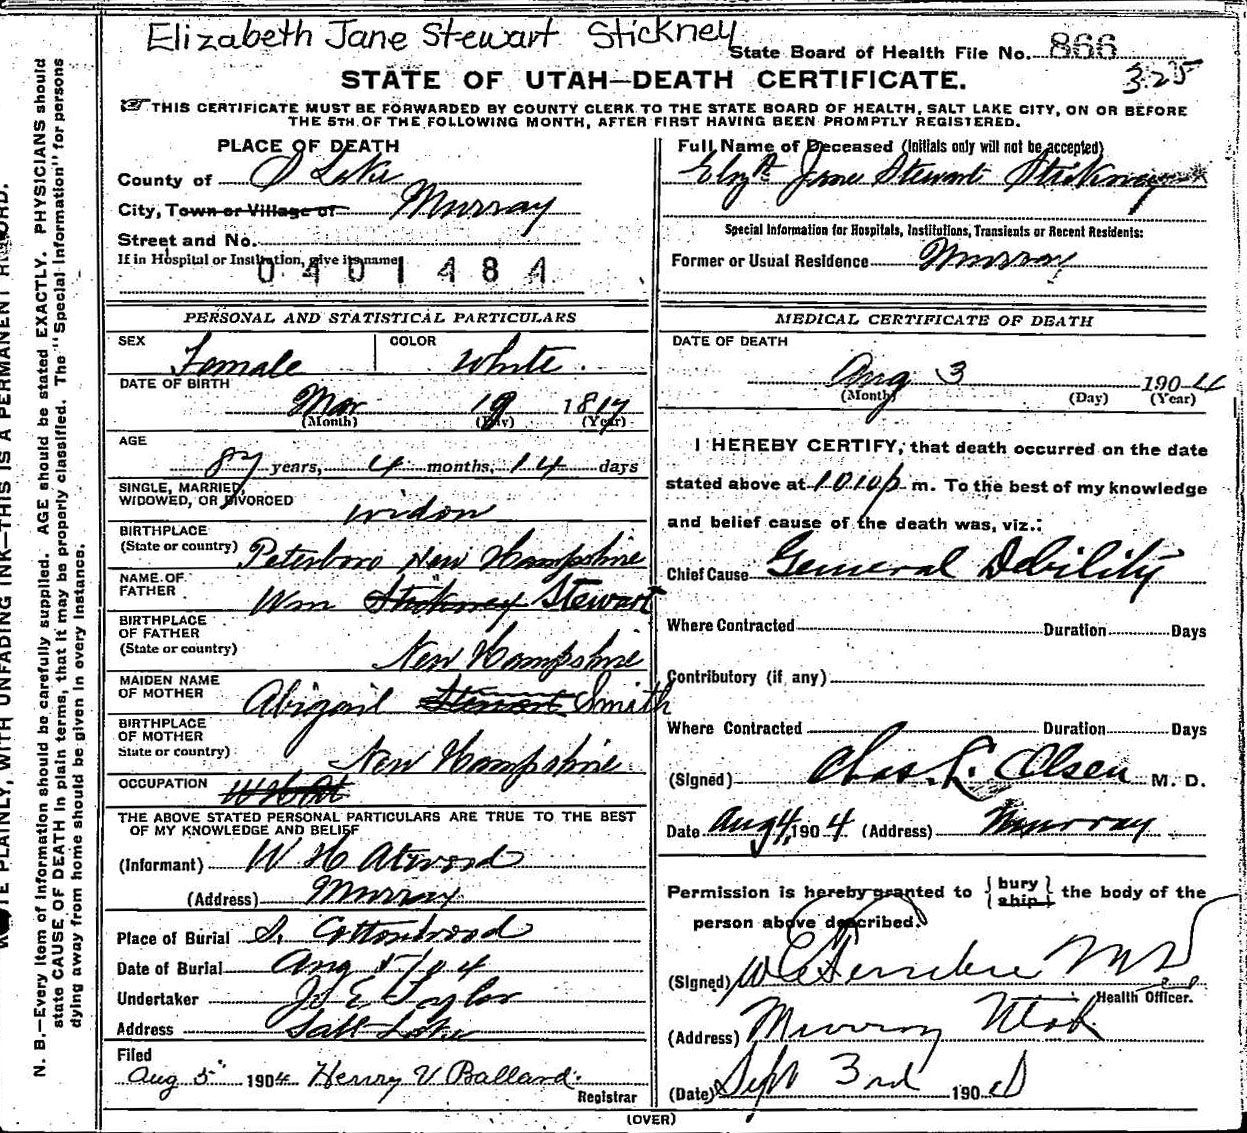 Elizabeth Jane Stewart Stickney
State Board of Health File No. 866
STATE OF UTAH—DEATH CERTIFICATE.
325
☞ THIS CERTIFICATE MUST BE FORWARDED BY COUNTY CLERK TO THE STATE BOARD OF HEALTH, SALT LAKE CITY, ON OR BEFORE
THE 5TH OF THE FOLLOWING MONTH, AFTER FIRST HAVING BEEN PROMPTLY REGISTERED.
PLACE OF DEATH
County of S Lake
City, Town or Village of Murray
Street and No.
If in Hospital or Institution, give its name
0401484
Full Name of Deceased (Initials only will not be accepted)
Elizth Jane Stewart Stickney
Special Information for Hospitals, Institutions, Transients or Recent Residents:
Former or Usual Residence Murray
PERSONAL AND STATISTICAL PARTICULARS
SEX Female COLOR White
DATE OF BIRTH
Mar 19 1817
(Month) (Day) (Year)
AGE
87 years, 4 months, 14 days
SINGLE, MARRIED,
WIDOWED, OR DIVORCED
widow
BIRTHPLACE
(State or country) Peterboro New Hampshire
NAME OF
FATHER Wm Stickney Stewart
BIRTHPLACE
OF FATHER
(State or country) New Hampshire
MAIDEN NAME
OF MOTHER Abigail Stewart Smith
BIRTHPLACE
OF MOTHER
State or country) New Hampshire
OCCUPATION
THE ABOVE STATED PERSONAL PARTICULARS ARE TRUE TO THE BEST
OF MY KNOWLEDGE AND BELIEF
(Informant) W H Atwood
(Address) Murray
Place of Burial S. Cottonwood
Date of Burial Aug 5/04
Undertaker Jos E Taylor
Address Salt Lake
Filed
Aug 5 1904 Henry V Ballard.
Registrar
MEDICAL CERTIFICATE OF DEATH
DATE OF DEATH
Aug 3 1904
(Month) (Day) (Year)
I HEREBY CERTIFY, that death occurred on the date
stated above at 1010 p m. To the best of my knowledge
and belief cause of the death was, viz.:
Chief Cause General Debility
Where Contracted Duration Days
Contributory (if any)
Where Contracted Duration Days
(Signed) Chas. L. Olsen M. D.
Date Aug 4, 1904 (Address) Murray
Permission is hereby granted to {bury
ship} the body of the
person above described.
(Signed)
Health Officer.
(Address) Murray Utah
(Date) Sept 3rd 1904
(OVER)
N. B.—Every item of information should be carefully supplied. AGE should be stated EXACTLY. PHYSICIANS should
state CAUSE OF DEATH in plain terms, that it may be properly classified. The "Special Information" for persons
dying away from home should be given in every instance.
PLAINLY, WITH UNFADING INK—THIS IS A PERMANENT RECORD.